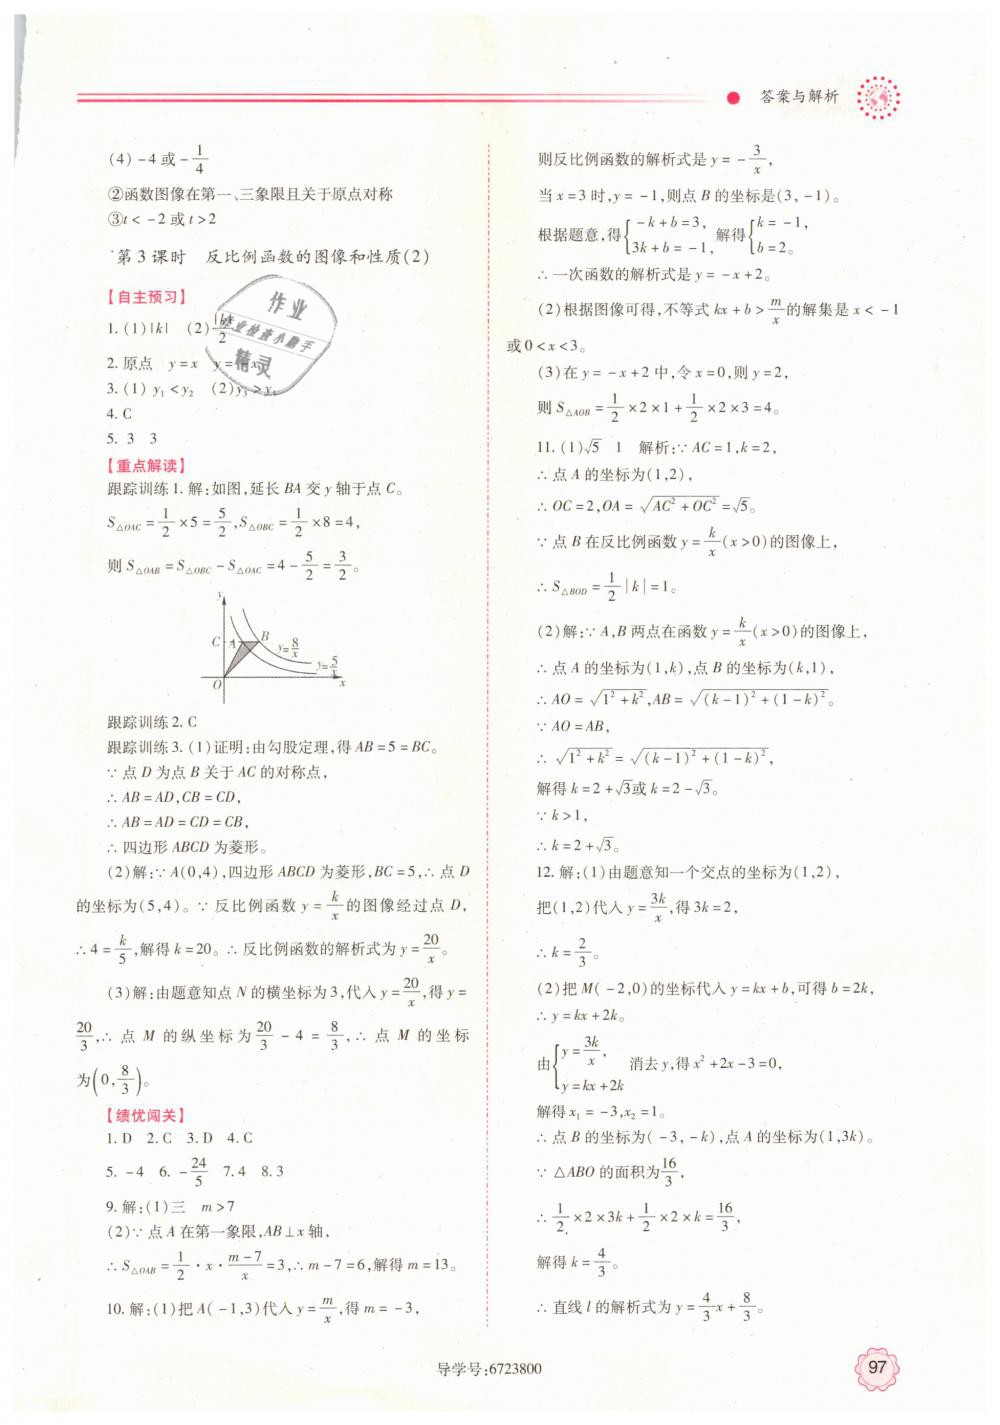 答案与解析
(4) -4 或 -1/4
②函数图像在第一、三象限且关于原点对称
③t < -2 或 t > 2
第 3 课时　反比例函数的图像和性质(2)
【自主预习】
1. (1) |k|　(2) |k|/2
2. 原点　y = x　y = -x
3. (1) y₁ < y₂　(2) y₃ > y₄
4. C
5. 3　3
【重点解读】
跟踪训练 1. 解:如图,延长 BA 交 y 轴于点 C。
S△OAC = 1/2 × 5 = 5/2, S△OBC = 1/2 × 8 = 4,
则 S△OAB = S△OBC - S△OAC = 4 - 5/2 = 3/2。
y
C A B y=8/x
y=5/x
O x
跟踪训练 2. C
跟踪训练 3. (1)证明:由勾股定理,得 AB = 5 = BC。
∵ 点 D 为点 B 关于 AC 的对称点,
∴ AB = AD, CB = CD,
∴ AB = AD = CD = CB,
∴ 四边形 ABCD 为菱形。
(2)解:∵ A(0,4),四边形 ABCD 为菱形,BC = 5,∴ 点 D
的坐标为(5,4)。∵ 反比例函数 y = k/x 的图像经过点 D,
∴ 4 = k/5,解得 k = 20。∴ 反比例函数的解析式为 y = 20/x。
(3)解:由题意知点 N 的横坐标为 3,代入 y = 20/x,得 y =
20/3,∴ 点 M 的纵坐标为 20/3 - 4 = 8/3,∴ 点 M 的坐标
为(0, 8/3)。
【绩优闯关】
1. D　2. C　3. D　4. C
5. -4　6. -24/5　7. 4　8. 3
9. 解:(1)三　m > 7
(2)∵ 点 A 在第一象限,AB⊥x 轴,
∴ S△OAB = 1/2 · x · (m-7)/x = 3,∴ m - 7 = 6,解得 m = 13。
10. 解:(1)把 A(-1,3)代入 y = m/x,得 m = -3,
则反比例函数的解析式是 y = -3/x,
当 x = 3 时,y = -1,则点 B 的坐标是(3,-1)。
根据题意,得{-k + b = 3, 3k + b = -1, 解得{k = -1, b = 2。
∴ 一次函数的解析式是 y = -x + 2。
(2)根据图像可得,不等式 kx + b > m/x 的解集是 x < -1
或 0 < x < 3。
(3)在 y = -x + 2 中,令 x = 0,则 y = 2,
则 S△AOB = 1/2 × 2 × 1 + 1/2 × 2 × 3 = 4。
11. (1)√5　1　解析:∵ AC = 1,k = 2,
∴ 点 A 的坐标为(1,2),
∴ OC = 2,OA = √(AC² + OC²) = √5。
∵ 点 B 在反比例函数 y = k/x (x > 0)的图像上,
∴ S△BOD = 1/2 |k| = 1。
(2)解:∵ A,B 两点在函数 y = k/x (x > 0)的图像上,
∴ 点 A 的坐标为(1,k),点 B 的坐标为(k,1),
∴ AO = √(1² + k²), AB = √((k-1)² + (1-k)²)。
∵ AO = AB,
∴ √(1² + k²) = √((k-1)² + (1-k)²),
解得 k = 2 + √3 或 k = 2 - √3。
∵ k > 1,
∴ k = 2 + √3。
12. 解:(1)由题意知一个交点的坐标为(1,2),
把(1,2)代入 y = 3k/x,得 3k = 2,
∴ k = 2/3。
(2)把 M(-2,0)的坐标代入 y = kx + b,可得 b = 2k,
∴ y = kx + 2k。
由{y = 3k/x, y = kx + 2k 消去 y,得 x² + 2x - 3 = 0,
解得 x₁ = -3, x₂ = 1。
∴ 点 B 的坐标为(-3,-k),点 A 的坐标为(1,3k)。
∵ △ABO 的面积为 16/3,
∴ 1/2 × 2 × 3k + 1/2 × 2 × k = 16/3,
解得 k = 4/3。
∴ 直线 l 的解析式为 y = 4/3 x + 8/3。
导学号:6723800
97
作业
作业检查小助手
精灵